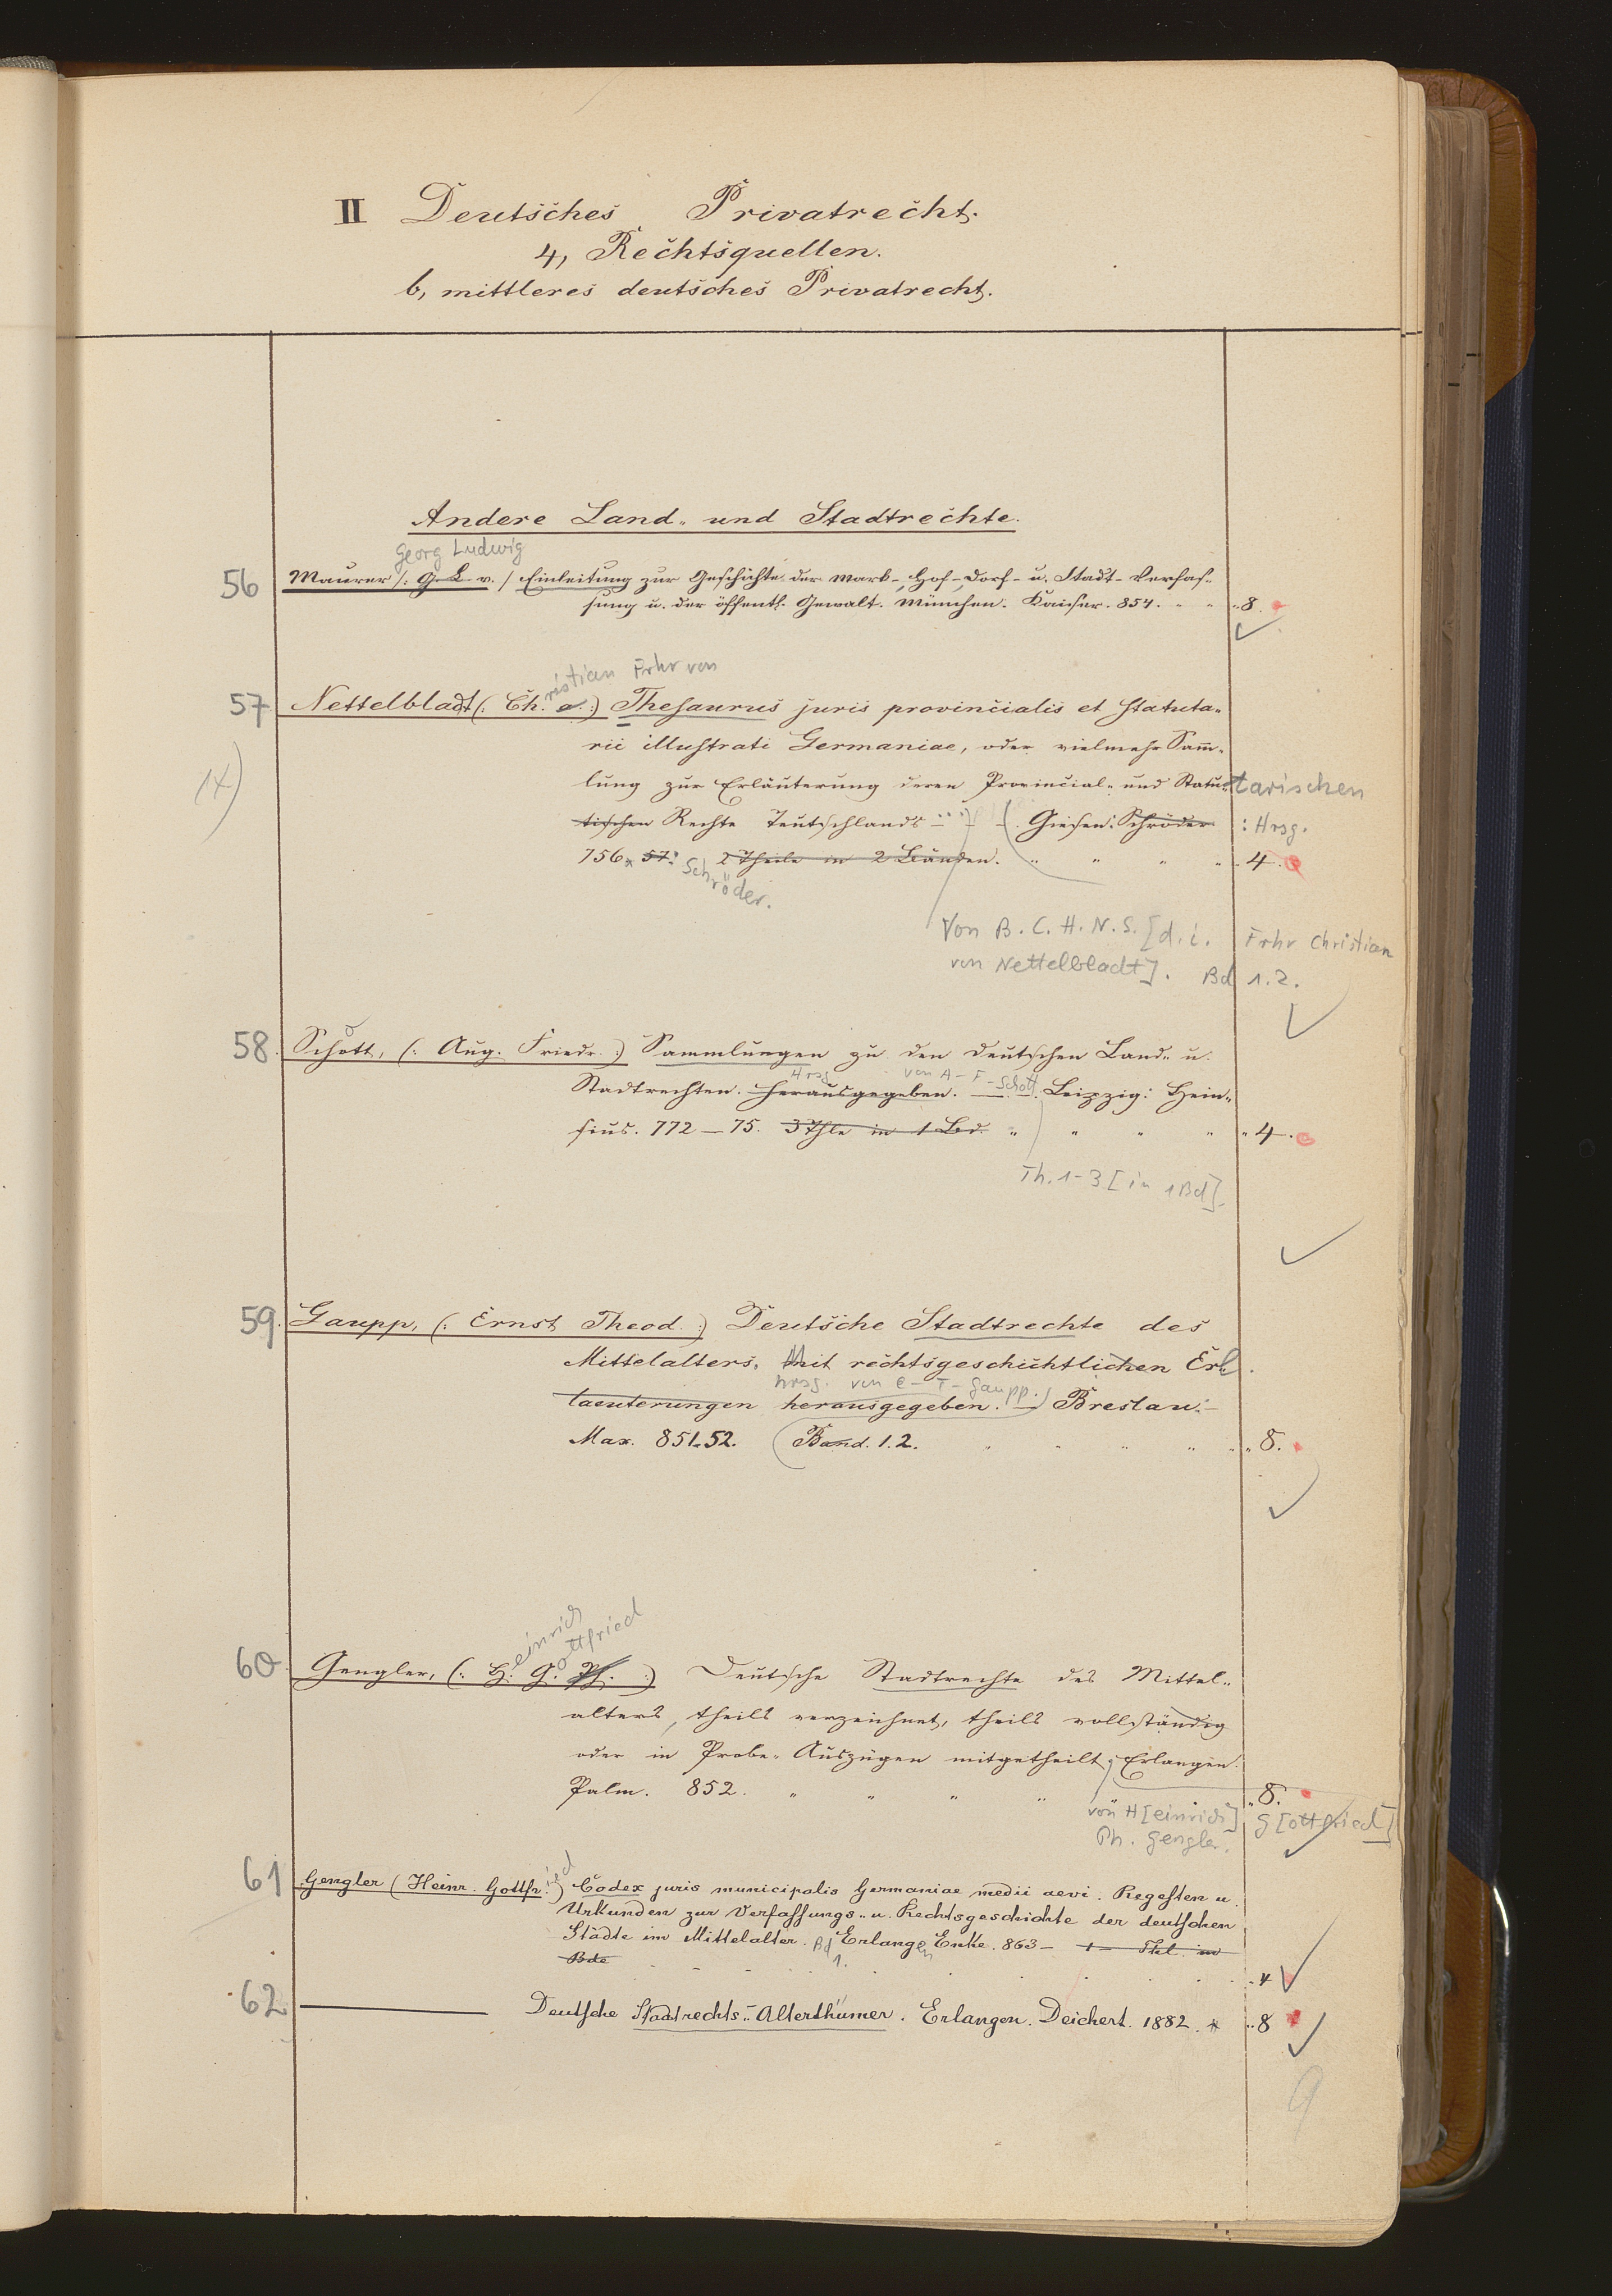 II Deutsches Privatrecht.
4, Rechtsquellen.
b, mittleres deutsches Privatrecht.
Andere Land- und Stadtrechte.
Georg Ludwig
56 Maurer /: G. L. v. / Einleitung zur Geschichte der Mark-, Hof-, Dorf- u. Stadt-Verfas-
sung u. der öffentl. Gewalt. München. Kaiser. 854. " " 8.
ristian Frhr von
57 Nettelbladt (: Ch. v. :) Thesaurus juris provincialis et statuta-
rii illustrati Germaniae, oder vielmehr Sam̄-
lung zur Erläuterung deren Provincial- und Statu-tarischen
tischen Rechte Teutschlands ... Giesen: Schröder : Hrsg.
756. 57. 2 Theile in 2 Bänden. " " " " 4.
Schröder.
Von B. C. H. N. S. [d. i. Frhr Christian
von Nettelbladt]. Bd 1.2.
58. Schott, (: Aug. Friedr. :) Sammlungen zu den deutschen Land- u.
Hrsg von A- F- Schott
Stadtrechten. herausgegeben. Leipzig: Hein-
sius. 772-75. 3 Thle in 1 Bd. " " " " " 4.
Th. 1-3 [in 1 Bd].
59. Gaupp, (: Ernst Theod. :) Deutsche Stadtrechte des
Mittelalters, Mit rechtsgeschichtlichen Erl.
hrsg. von E- T- Gaupp.
laeuterungen herausgegeben. - Breslau:
Max. 851.52. Band. 1.2. " " " " " 8.
einrich ottfried
60. Gengler, (: H. G. Ph. :) Deutsche Stadtrechte des Mittel-
alters, theils verzeichnet, theils vollständig
oder in Probe-Auszügen mitgetheilt; Erlangen.
Palm. 852. " " " " " 8.
von H[einrich] G[ottfried]
Ph. Gengler.
61 Gengler (Heinr. Gottfr.ied) Codex juris municipalis Germaniae medii aevi. Regesten u.
Urkunden zur Verfassungs- u. Rechtsgeschichte der deutschen
Städte im Mittelalter. Bd 1. Erlangen Enke. 863- 1- Thl. in
Bde 4
62 ——— Deutsche Stadtrechts-Alterthümer. Erlangen. Deichert. 1882. * " 8
9